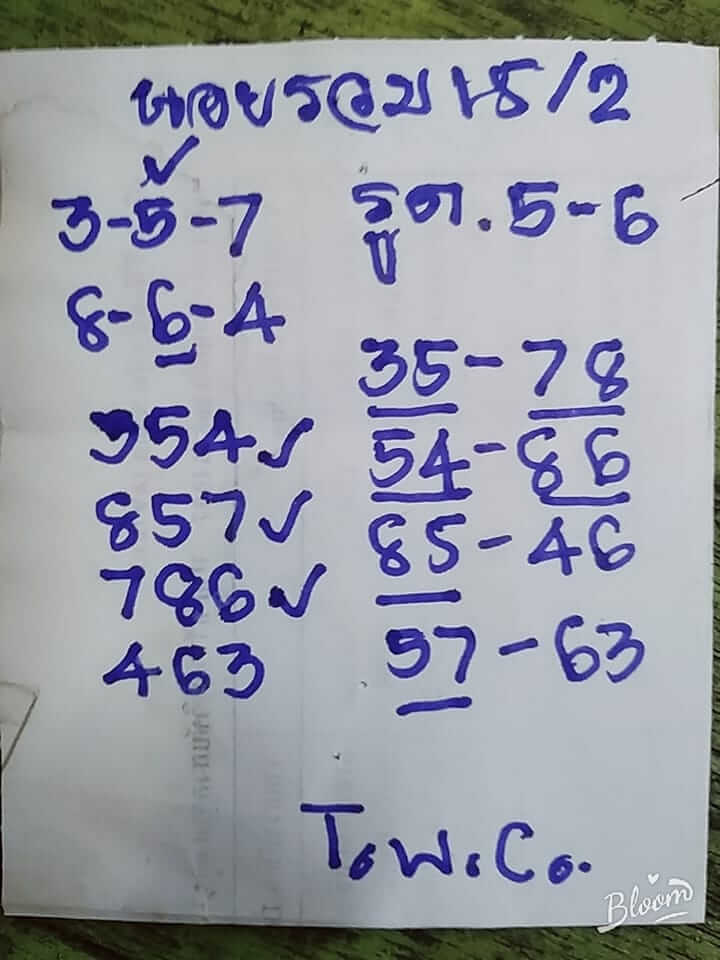 หอยรวม 15/2
3-5-7
รูด. 5-6
8-6-4
35-78
354✓
54-86
857✓
85-46
786✓
57-63
463
T.W.Co.
Bloom